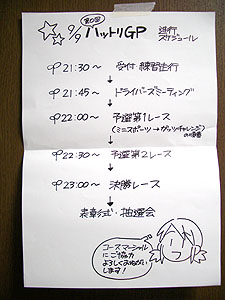 9/9 第0回 ハットリGP 進行スケジュール
PM 21:30〜 受付・練習走行
↓
PM 21:45〜 ドライバーズミーティング
↓
PM 22:00〜 予選第1レース
(ミニスポーツ→ガッツチャレンジ)
↓
PM 22:30〜 予選第2レース
↓
PM 23:00〜 決勝レース
↓
表彰式・抽選会
コースマーシャル
にご協力
よろしくおねがい
します!